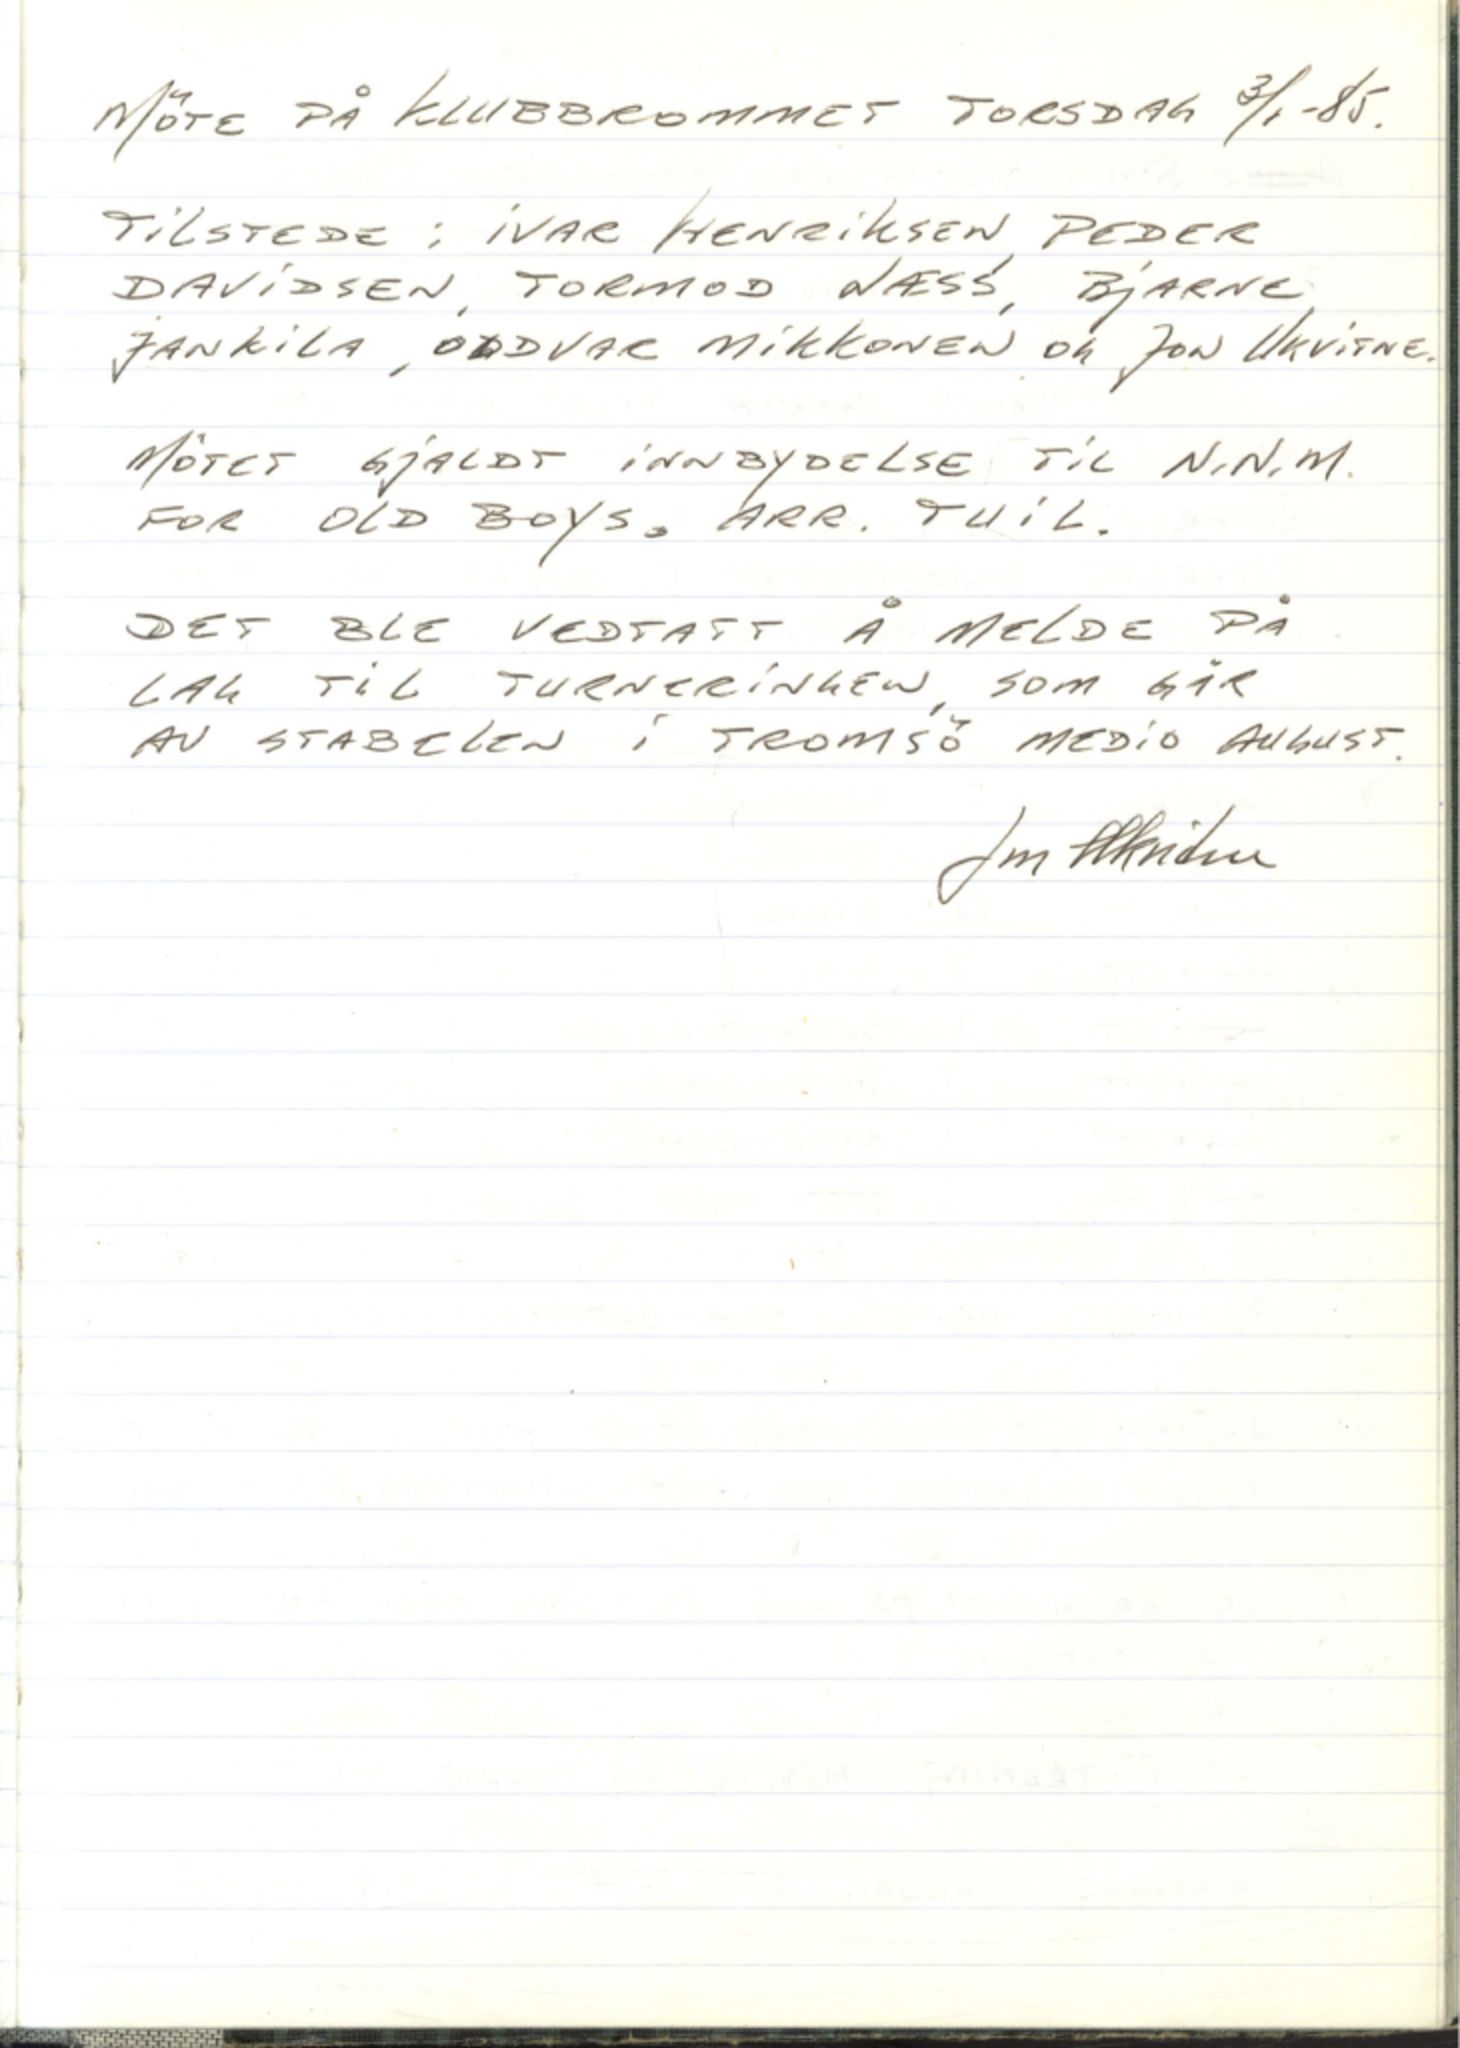 MÖTE PÅ KLUBBROMMET TORSDAG 3/1-85.
TILSTEDE: IVAR HENRIKSEN, PEDER
DAVIDSEN, TORMOD NÆSS, BJARNE
JANKILA, ODDVAR MIKKONEN OG JON UKVITNE.
MÖTET GJALDT INNBYDELSE TIL N.N.M.
FOR OLD BOYS. ARR. TUIL.
DET BLE VEDTATT Å MELDE PÅ
LAG TIL TURNERINGEN, SOM GÅR
AV STABELEN I TROMSÖ MEDIO AUGUST.
Jon Ukvitne